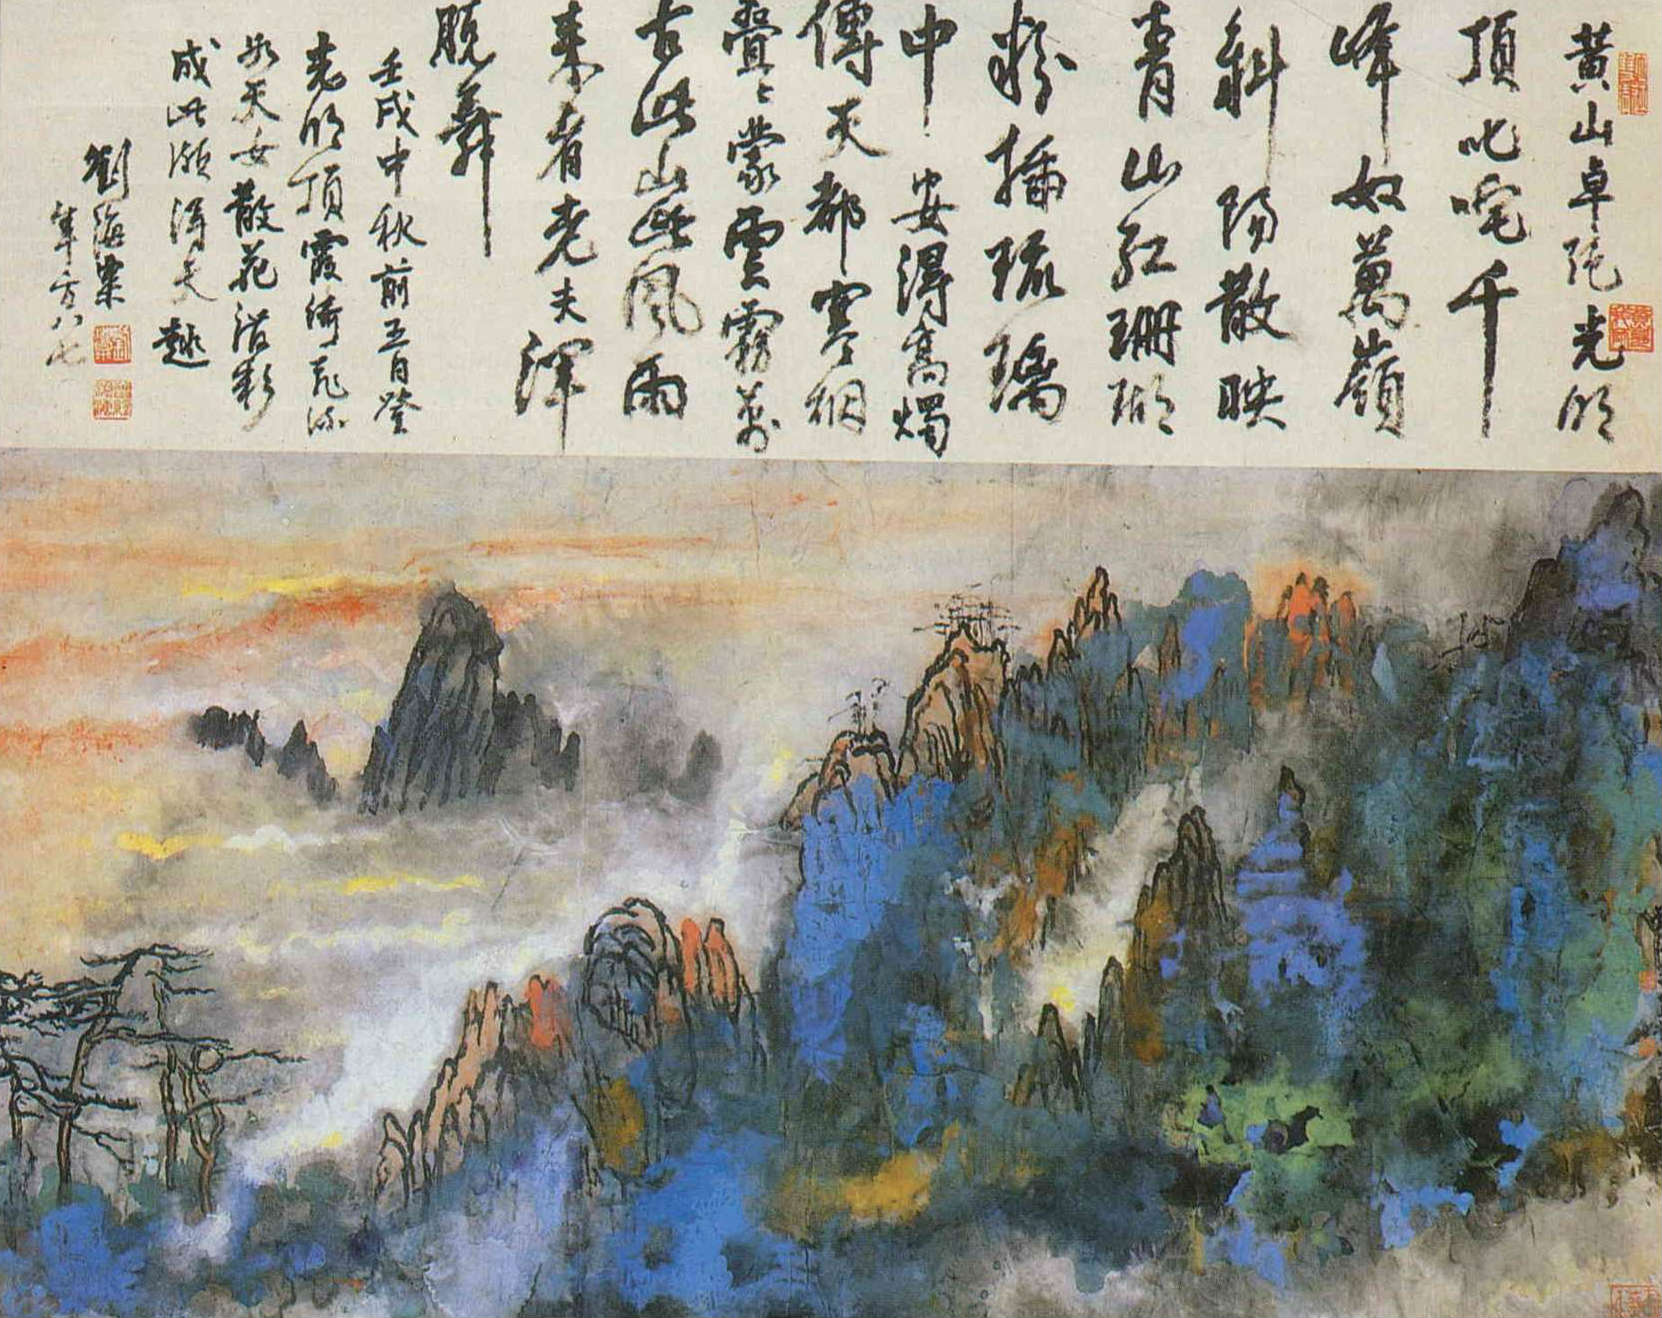 黃山卓絶光明
頂叱咤千
峰奴萬嶺
斜陽散映
青山紅珊瑚
粉播琉璃
中安得高燭
傳天都寒烟
疊疊蒙雲霧萬
古此山此風雨
來者堯夫渾
脫舞
壬戌中秋前五日登
光明頂霞綺飛流
如天女散花潑彩
成此頗得天趣
劉海粟
年方八七